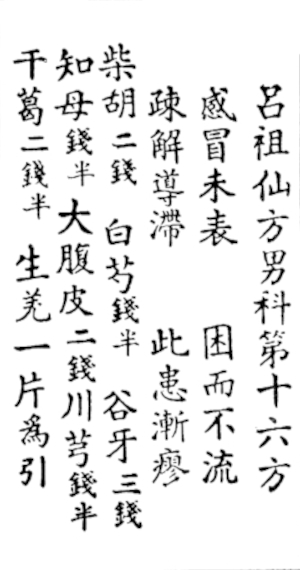 呂祖仙方男科第十六方
感冒未表　困而不流
疎解導滯　此患漸瘳
柴胡二錢　白芍錢半　谷牙三錢
知母錢半　大腹皮二錢　川芎錢半
干葛二錢半　生羌一片爲引